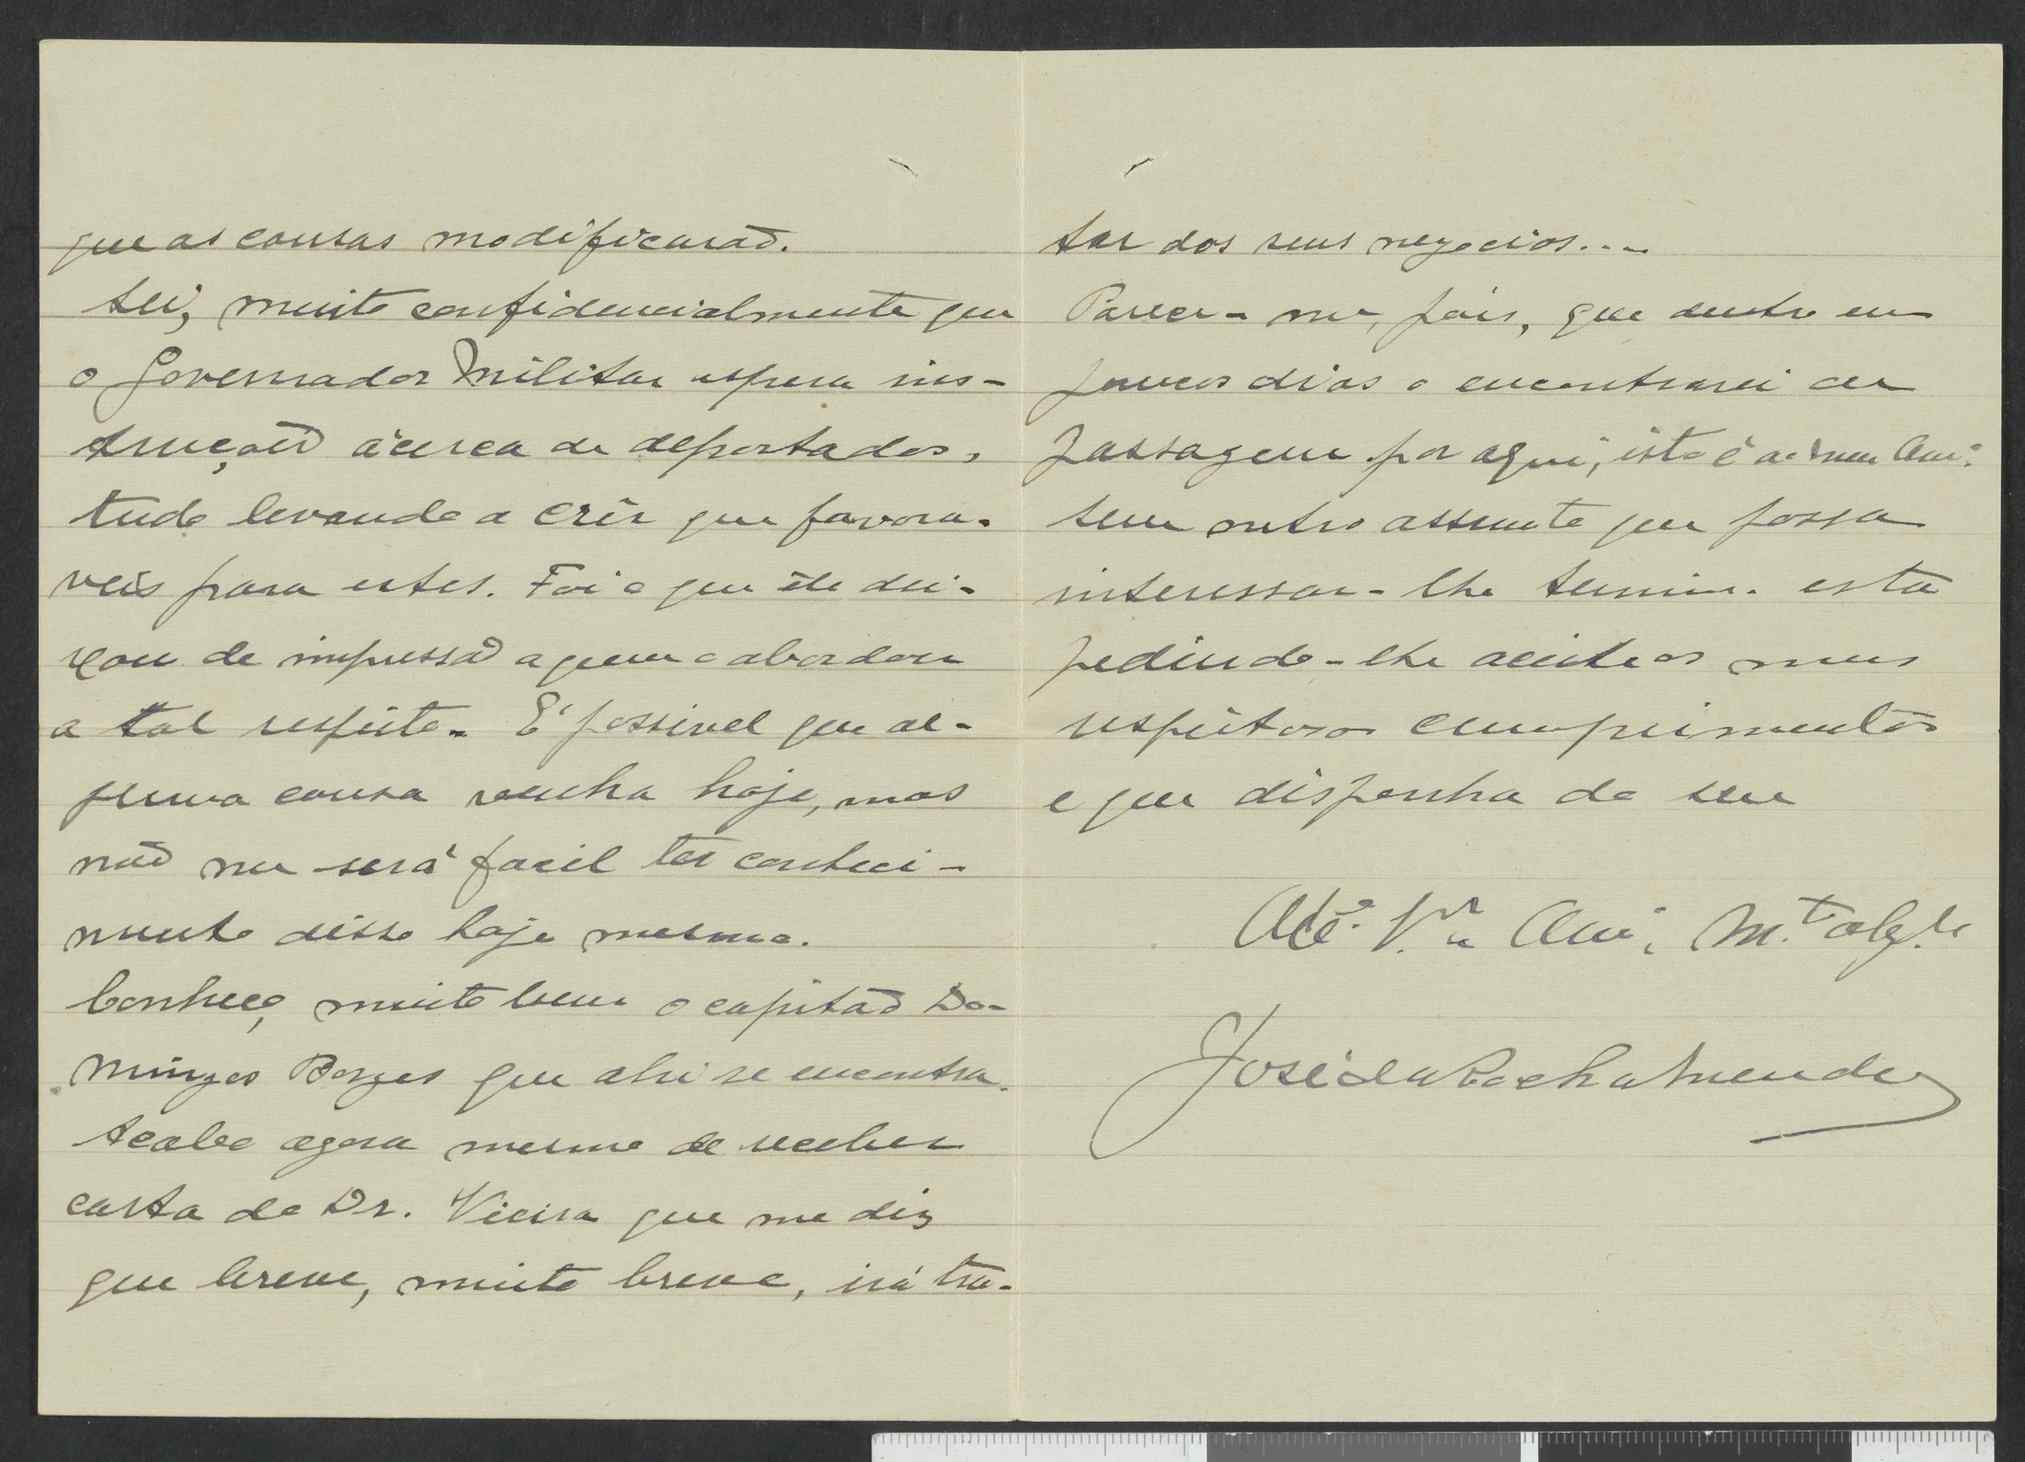 que as cousas modificarão.
Sei, muito confidencialmente que
o Governador Militar espera ins-
truções ácerca de deportados,
tudo levando a crêr que favora-
veis para estes. Foi o que êle dei-
xou de impressão a quem o abordou
a tal respeito. E' possivel que al-
guma cousa venha hoje, mas
não me será facil ter conheci-
mento disso hoje mesmo.
Conheço, muito bem o capitão Do-
mingos Borges que ahi se encontra.
Acabo agora mesmo de receber
carta do Dr. Vieira que me diz
que breve, muito breve, irá tra-
tar dos seus negocios....
Parece-me, pois, que dentro em
poucos dias o encontrarei de
passagem por aqui, isto é ao meu Am.º
Sem outro assunto que possa
interessar-lhe termino esta
pedindo-lhe aceite os meus
respeitosos cumprimentos
e que disponha do seu
Att.º V.ºr Am.º M.to obg.do
José da Rocha Mendes